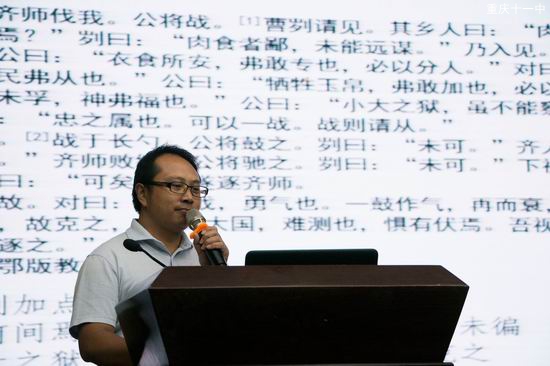 重庆十一中
齐师伐我。公将战。[1]曹刿请见。其乡人曰：“肉
焉？”刿曰：“肉食者鄙，未能远谋。”乃入见。
公曰：“衣食所安，弗敢专也，必以分人。”对曰
民弗从也。”公曰：“牺牲玉帛，弗敢加也，必以
未孚，神弗福也。”公曰：“小大之狱，虽不能察
：“忠之属也。可以一战。战则请从。”
[2]战于长勺。公将鼓之。刿曰：“未可。”齐人
”齐师败 公将驰之。刿曰：“未可。”下
曰：“可矣 逐齐师。
故。对曰： 战，勇气也。一鼓作气，再而衰，
，故克之。 大国，难测也，惧有伏焉。吾视
逐之。”
鄂版教
加点
间 未徧
之狱 之